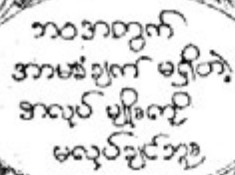 ဘဝအတွက်
အာမခံချက် မရှိတဲ့
အလုပ် မျိုးကို
မလုပ်ချင်ဘူး